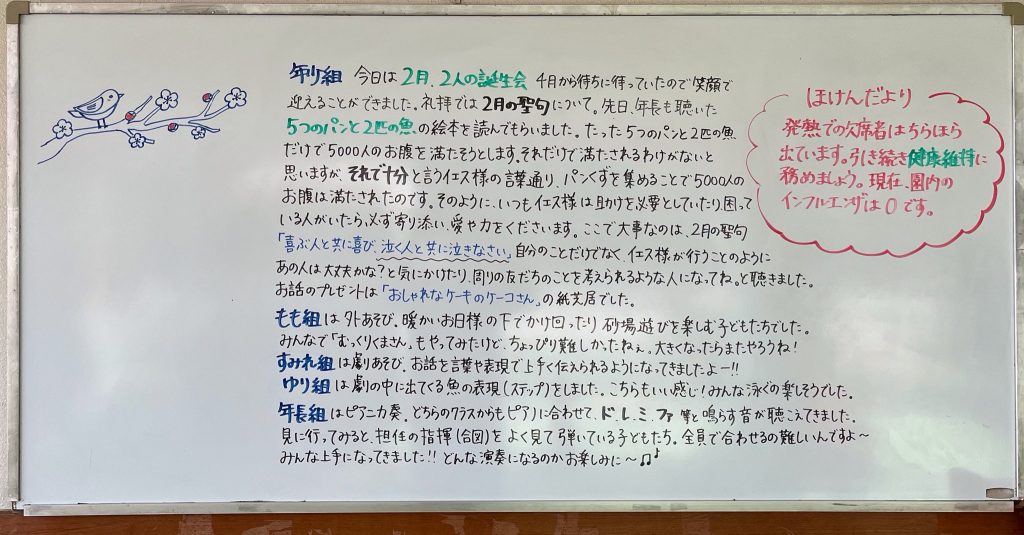 年少組 今日は2月、2人の誕生会 4月から待ちに待っていたので笑顔で
迎えることができました。礼拝では2月の聖句について。先日、年長も聴いた
5つのパンと2匹の魚の絵本を読んでもらいました。たった5つのパンと2匹の魚
だけで5000人のお腹を満たそうとします。それだけで満たされるわけがないと
思いますが、それで十分と言うイエス様の言葉通り、パンくずを集めることで5000人の
お腹は満たされたのです。そのように、いつもイエス様は助けを必要としていたり困って
いる人がいたら、必ず寄り添い、愛や力をくださいます。ここで大事なのは、2月の聖句
「喜ぶ人と共に喜び、泣く人と共に泣きなさい」自分のことだけでなく、イエス様が行うことのように
あの人は大丈夫かな?と気にかけたり、周りの友だちのことを考えられるような人になってね。と聴きました。
お話のプレゼントは「おしゃれなケーキのケーコさん」の紙芝居でした。
もも組は外あそび。暖かいお日様の下でかけ回ったり砂場遊びを楽しむ子どもたちでした。
みんなで「むっくりくまさん」もやってみたけど、ちょっぴり難しかったねぇ。大きくなったらまたやろうね!
すみれ組は劇あそび。お話を言葉や表現で上手く伝えられるようになってきましたよー!!
ゆり組は劇の中に出てくる魚の表現(ステップ)をしました。こちらもいい感じ!みんな泳ぐの楽しそうでした。
年長組はピアニカ奏。どちらのクラスからもピアノに合わせて、ド、レ、ミ、ファ 等と鳴らす音が聴こえてきました。
見に行ってみると、担任の指揮(合図)をよく見て弾いている子どもたち。全員で合わせるの難しいんですよ〜
みんな上手になってきました!!どんな演奏になるのかお楽しみに〜♫♪
ほけんだより
発熱での欠席者はちらほら
出ています。引き続き健康維持に
務めましょう。現在、園内の
インフルエンザは0です。